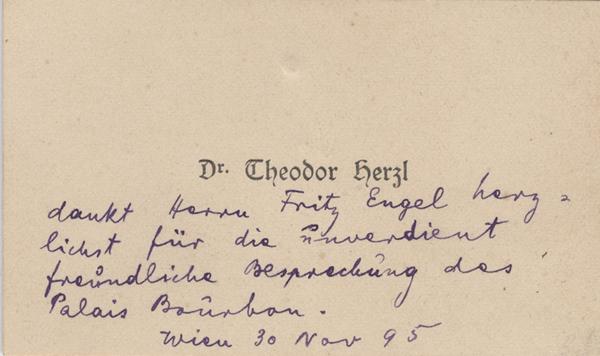 Dr. Theodor Herzl
dankt Herrn Fritz Engel herz=
lichst für die unverdient
freundliche Besprechung des
Palais Bourbon.
Wien 30 Nov 95